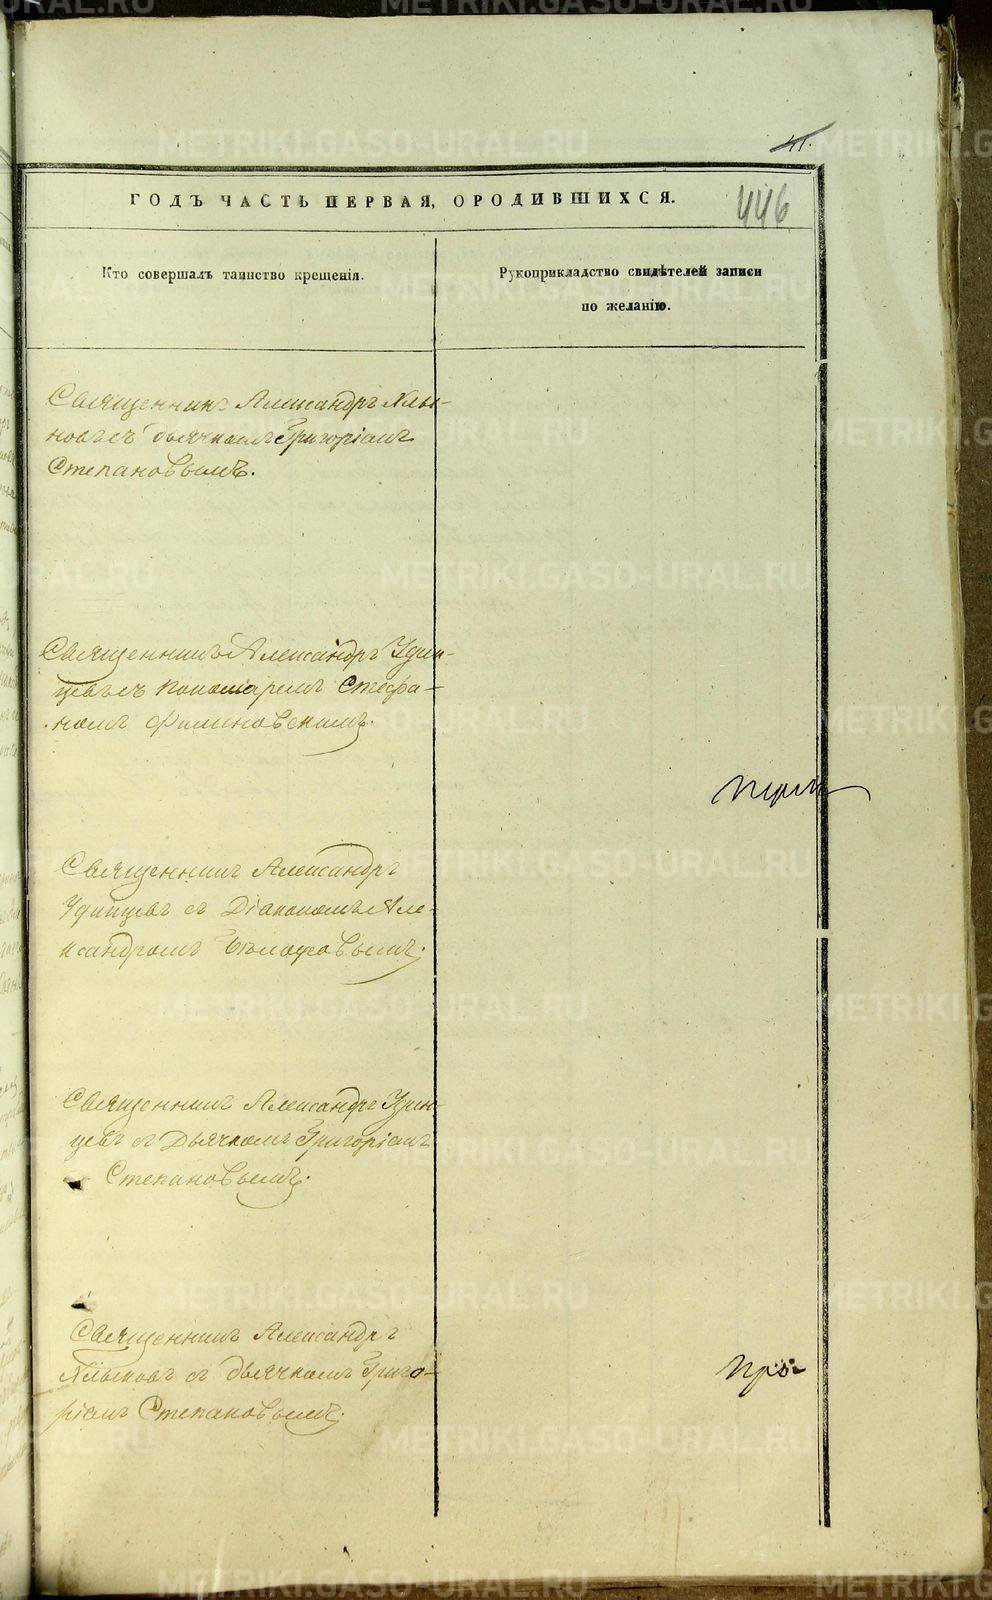 41.
ГОДЪ ЧАСТЬ ПЕРВАЯ, О РОДИВШИХСЯ.
446
Кто совершалъ таинство крещенія.
Рукоприкладство свидѣтелей записи
по желанію.
Священникъ Александръ Хлы-
новъ съ дьячкомъ Григоріемъ
Степановымъ.
Священникъ Александръ Удин-
цевъ съ пономаремъ Стефа-
номъ Филиновскимъ.
Священникъ Александръ
Удинцевъ съ Діакономъ Але-
ксандромъ
Священникъ Александръ Удин-
цевъ съ Дьячкомъ Григоріемъ
Степановымъ.
Священникъ Александръ
Хлыновъ съ дьячкомъ Григо-
ріемъ Степановымъ.
METRIKI.GASO-URAL.RU